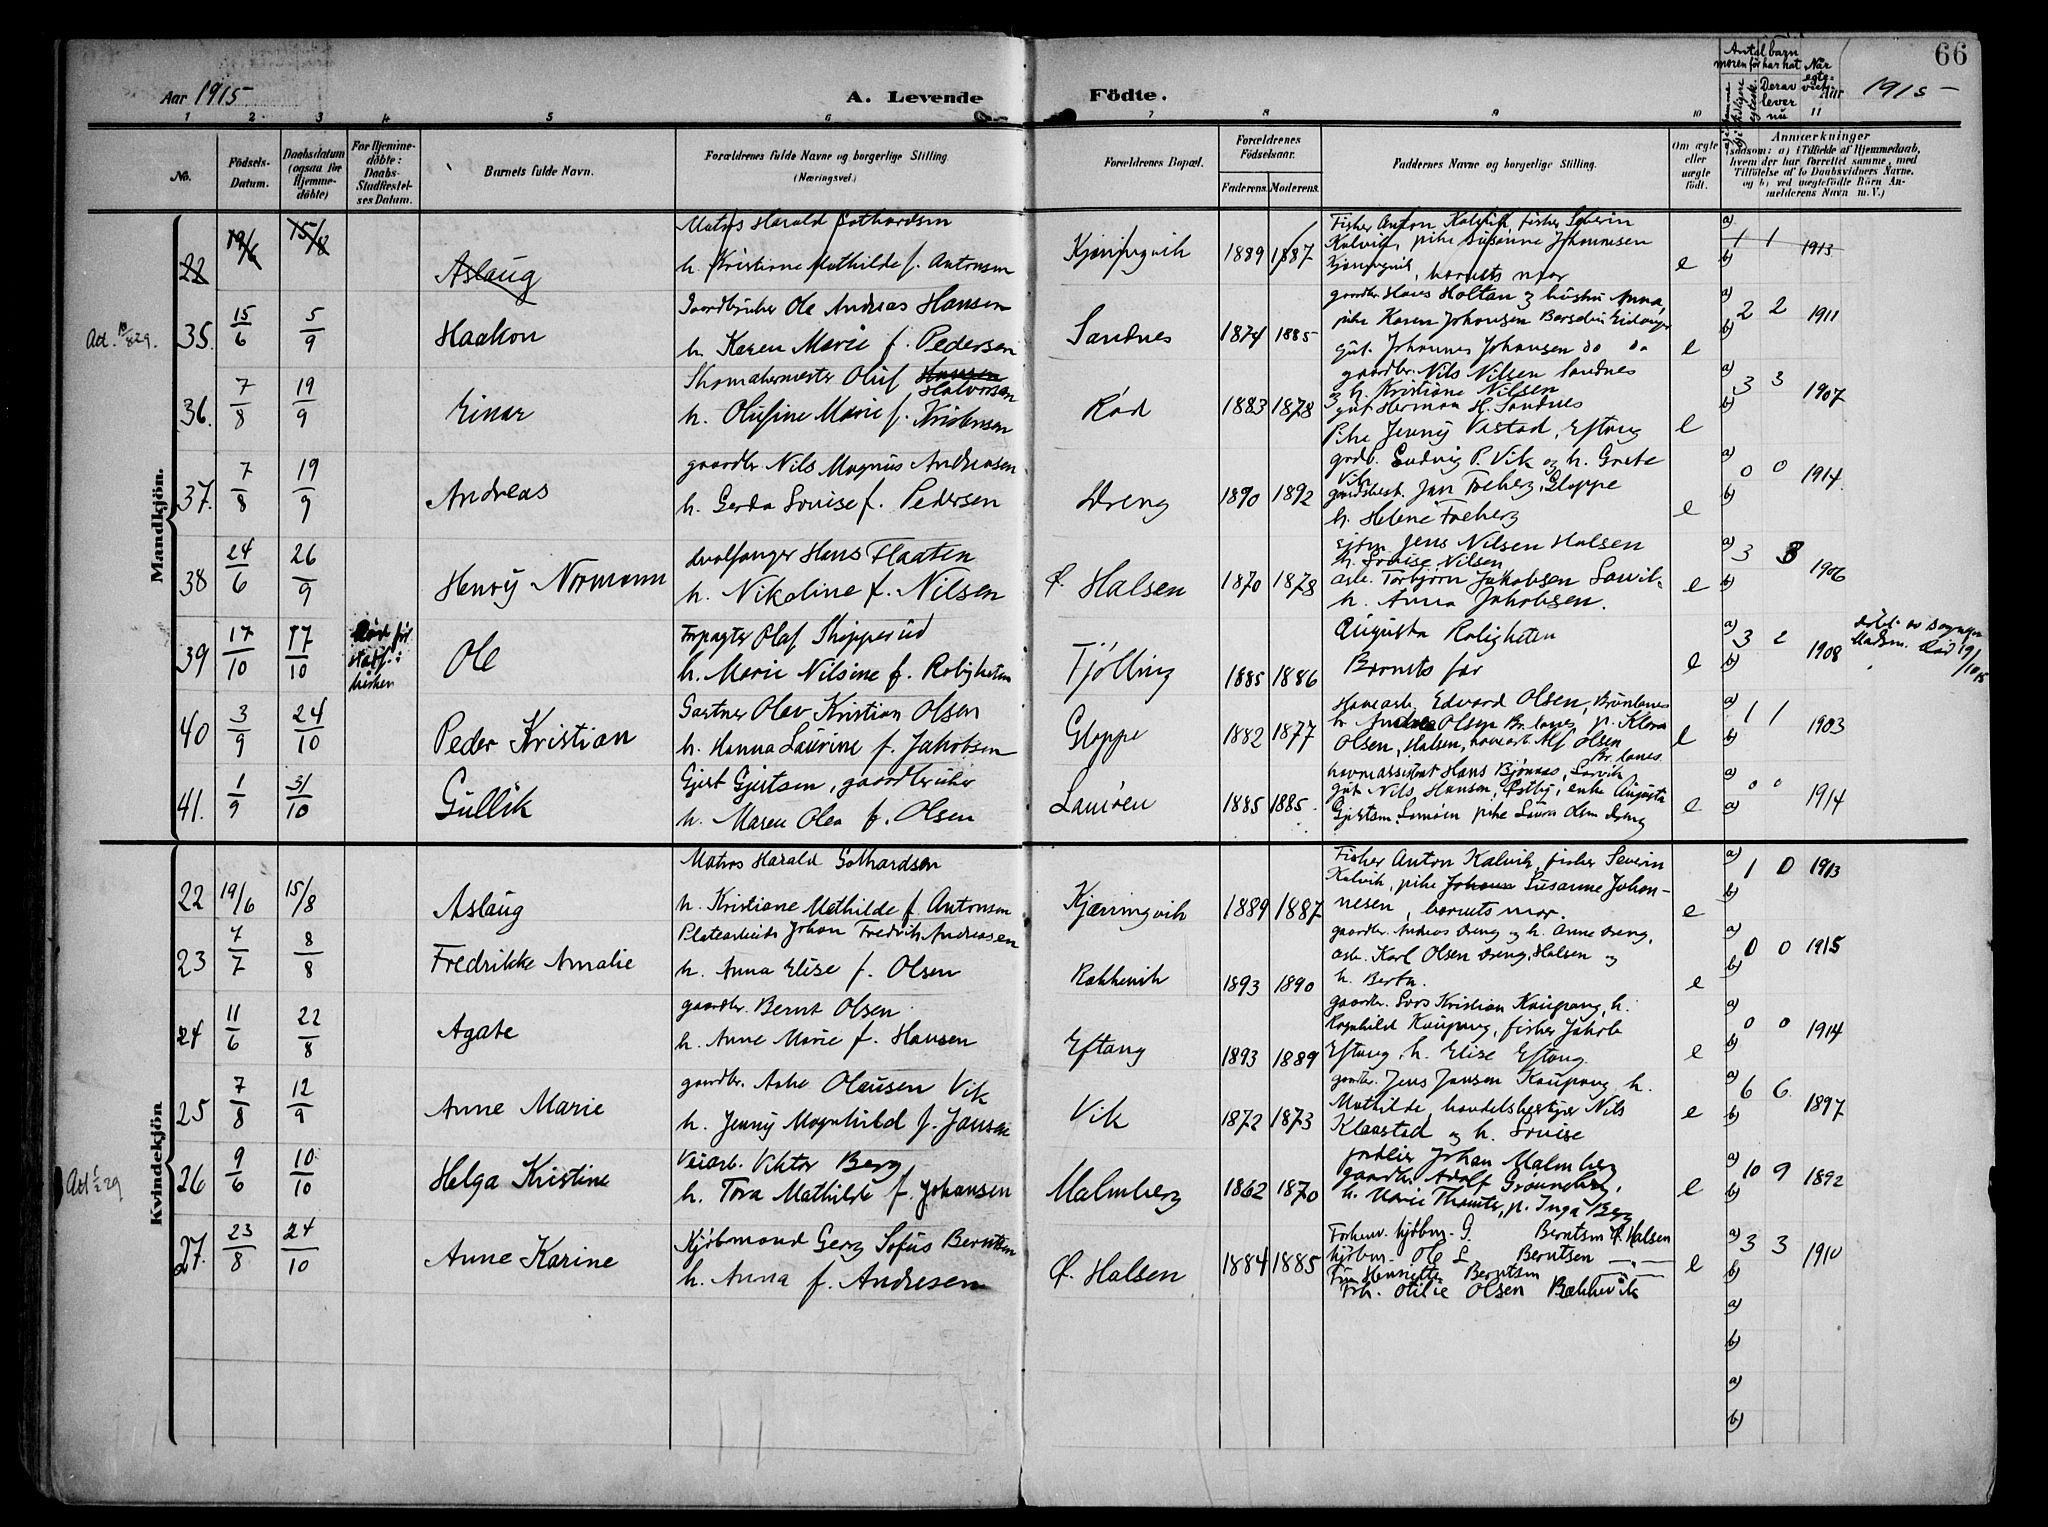 66
Aar 1915
A. Levende Födte.
Antal barn
moren för har hat
Derav
lever
nu
Aar 1915 –
1 2 3 4 5 6 7 8 9 10 11
No.
Födsels-
Datum.
Daabsdatum
(ogsaa for
Hjemme-
döbte)
For Hjemme-
döbte:
Daabs-
Stadfæstel-
ses Datum.
Barnets fulde Navn.
Forældrenes fulde Navne og borgerlige Stilling.
(Næringsvei.)
Forældrenes Bopæl.
Forældrenes
Födselsaar.
Faderens. Moderens.
Faddernes Navne og borgerlige Stilling.
Om ægte
eller
uægte
födt.
Anmærkninger
(saasom: a) i Tilfælde af Hjemmedaab,
hvem der har forrettet samme, med
Tilföielse af to Daabsvidners Navne,
og b) ved uægtefödte Börn An-
melderens Navn m. V.)
Mandkjön.
22 19/6 15/8 Aslaug
Matros Harald Gothardsen
h. Kristiane Mathilde f. Antonsen
Kjærringvik 1889 1887
Fisher Anton Kalvik, fisher Severin
Kalvik, pike Susanne Johannesen
Kjærringvik, barnets mor
e 1 1 1913
35. 15/6 5/9 Haakon
Gaardbruker Ole Andreas Hansen
h. Karen Marie f. Pedersen
Sandnes 1874 1885
gaardbr Hans Holtan og hustru Anna,
pike Karen Johansen
gut. Johannes Johansen do do
e 2 2 1911
36. 7/8 19/9 Einar
Skomakermester Oluf Hansen
Halvorsen
h. Olufine Marie f. Kristensen
Rød 1883 1878
gaardbr. Nils Nilsen Sandnes
h. Kristiane Nilsen
gut Herman H. Sandnes
Pike Jenny Vestad, Eftang
e 3 3 1907
37. 7/8 19/9 Andreas
gaardbr Nils Magnus Andreasen
h. Gerda Louise f. Pedersen
Dreng 1890 1892
grdb. Ludvig P. Vik og h. Grete
Vik
gaardsbest. Jan Foeberg, Gloppe
h. Helene Foeberg
e 0 0 1914
38 24/6 26/9 Henry Normann
hvalfanger Hans Flaaten
h. Nikoline f. Nilsen
Ø. Halsen 1870 1878
Jens Nilsen Halsen
h. Louise Nilsen
arb. Torbjörn Jakobsen
h. Anna Jakobsen.
e 3 3 1906
39 17/10 17/10 Ole
Forpagter Olaf Skipperud
h. Marie Nilsine f. Roligheten
Tjølling 1885 1886
Augusta Roligheten
Barnets far
e 3 2 1908
40 3/9 24/10 Peder Kristian
Gartner Olav Kristian Olsen
h. Hanna Laurine f. Jakobsen
Gloppe 1882 1877
Havearb. Edvard Olsen, Brunlanes
h. Andrea Olsen Br.lanes, p. Klara
Olsen, Halsen, havearb Alf Olsen
Br.lanes.
e 1 1 1903
41. 1/9 31/10 Gullik
Gjert Gjertsen, gaardbruker
h. Maren Olea f. Olsen
Lamöen 1885 1885
havneassistent Hans Bjönnes, Larvik
gut Nils Hansen, Østby, enke Augusta
Gjertsen, Lamöen pike Laura Olsen Dreng
e 0 0 1914
Kvindekjön
22 19/6 15/8 Aslaug
Matros Harald Gothardsen
h. Kristiane Mathilde f. Antonsen
Kjærringvik 1889 1887
Fisher Anton Kalvik, fisher Severin
Kalvik, pike Susanne Johan-
nesen, barnets mor.
e 1 0 1913
23 7/7 8/8 Fredrikke Amalie
Platearbeider Johan Fredrik Andreasen
h. Anna Elise f. Olsen
Rakkevik 1893 1890
gaardbr. Andreas Dreng og h. Anne Dreng,
arb. Karl Olsen Dreng, Halsen og
h. Berta.
e 0 0 1915
24 11/6 22/8 Agate
gaardbr. Bernt Olsen
h. Anne Marie f. Hansen
Eftang 1893 1889
gaardbr. Lars Kristian Kaupang, h.
Ragnhild Kaupang, fisher Jakob
Eftang, h. Elise Eftang.
e 0 0 1914
25 7/8 12/9 Anne Marie
gaardbr. Aake Olausen Vik
h. Jenny Magnhild f. Jansen
Vik 1872 1873
gaardbr. Jens Jansen Kaupang h.
Mathilde, handelsbestyrer Nils
Klaastad og h. Louise
e 6 6 1897
26 9/6 10/10 Helga Kristine
Veiarb. Viktor Berg
h. Tora Mathilde f. Johansen
Malmberg 1862 1870
Johan Malmberg
gaardbr. Adolf Grönneberg,
p. Inga Berg
e 10 9 1892
27. 23/8 24/10 Anne Karine
Kjöbmand Georg Sofus Berntsen
h. Anna f. Andresen
Ø. Halsen 1884 1885
Forhenv. kjöbm. G. Berntsen Ø. Halsen
kjöbm. Ole L. Berntsen
Fru Henriette Berntsen
Frk. Otilie Olsen Bækkevik
e 3 3 1910